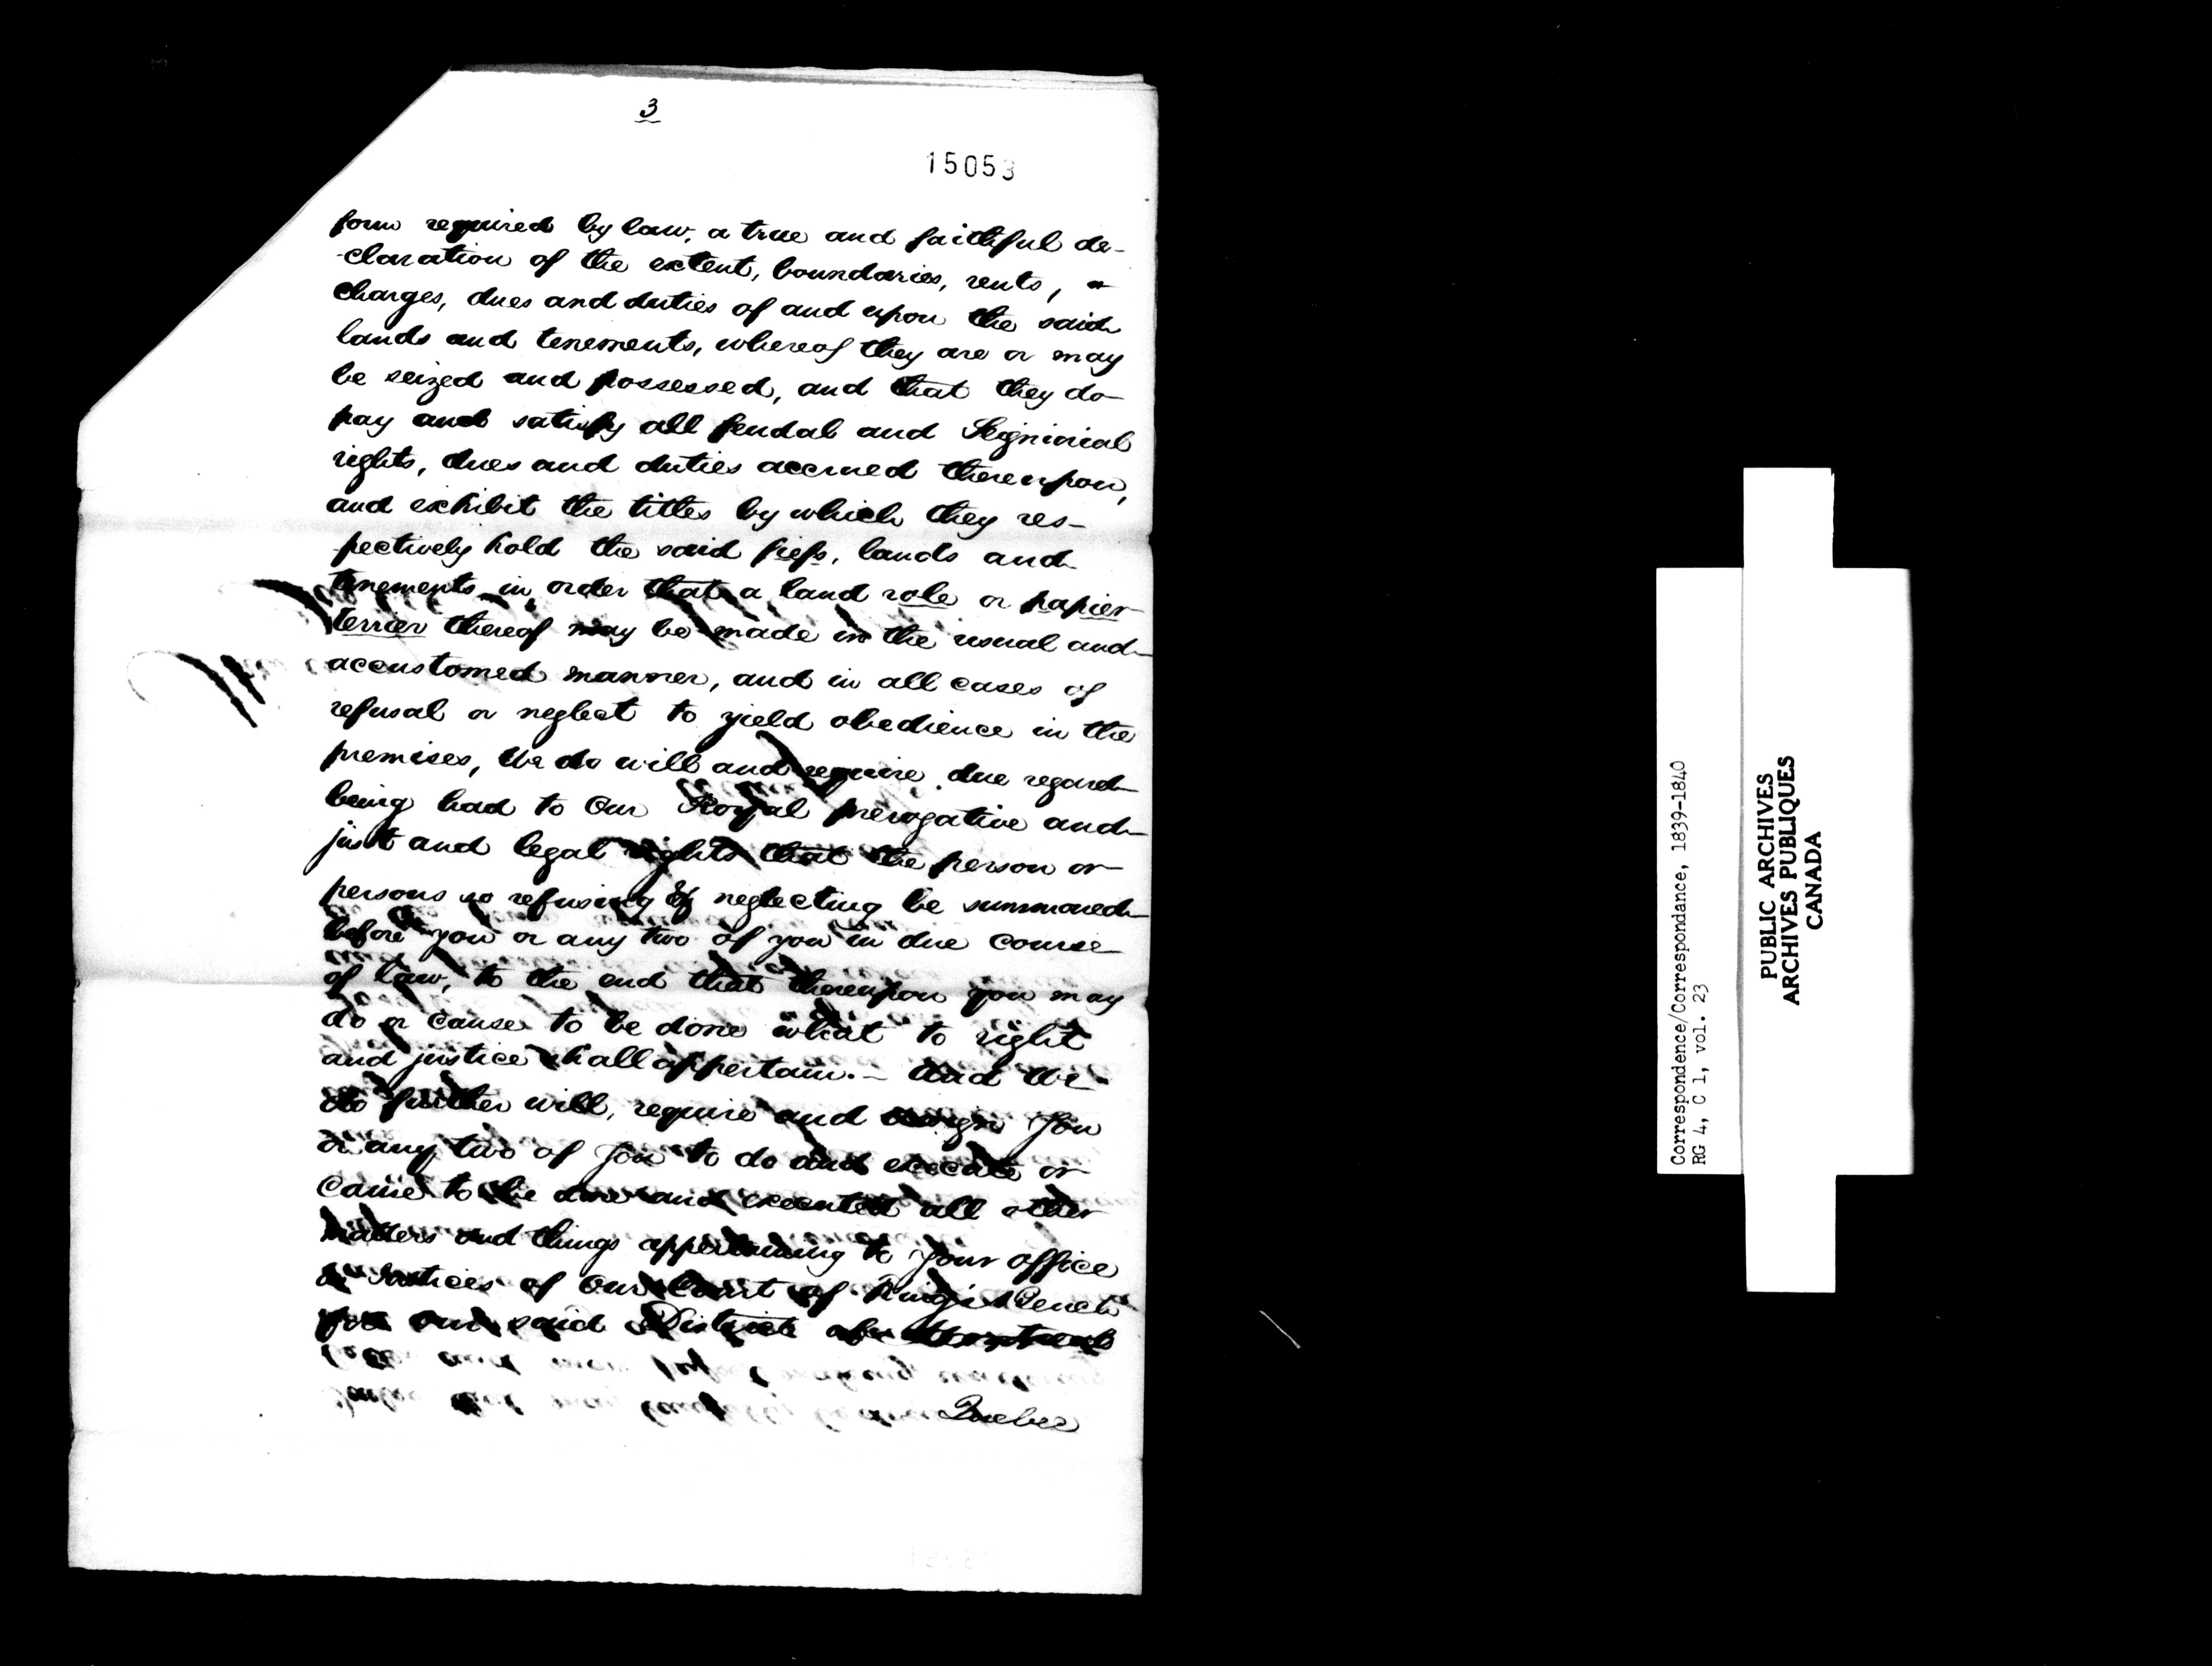 3
15053
form required by law, a true and faithful de-
-claration of the extent, boundaries, rents,
charges, dues and duties of and upon the said
lands and tenements, whereof they are or may
be seized and possessed, and that they do
pay and satisfy all feudal and Seigniorial
rights, dues and duties accrued thereupon,
and exhibit the titles by which they res-
-pectively hold the said fiefs, lands and
tenements in order that a land role or papier
terrier thereof may be made in the usual and
accustomed manner, and in all cases of
refusal or neglect to yield obedience in the
premises, We do will and require due regard
being had to Our Royal prerogative and
just and legal rights that the person or
persons so refusing or neglecting be summoned
before you or any two of you in due course
of law, to the end that thereupon you may
do or cause to be done what to right
and justice shall appertain. - And We
do further will, require and assign You
or any two of You to do and execute or
cause to be done and executed all other
matters and things appertaining to Your office
as Justices of Our Court of King's Bench
for our said District of
Quebec
Correspondence/Correspondance, 1839-1840
RG 4, C 1, vol. 23
PUBLIC ARCHIVES
ARCHIVES PUBLIQUES
CANADA